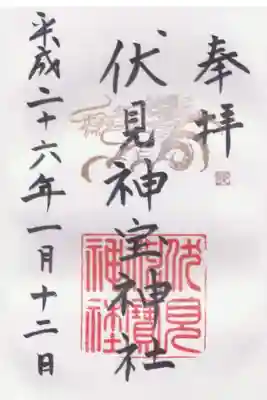 奉拝
伏見神宝神社
平成二十六年一月十二日
伏見
神寳
神社